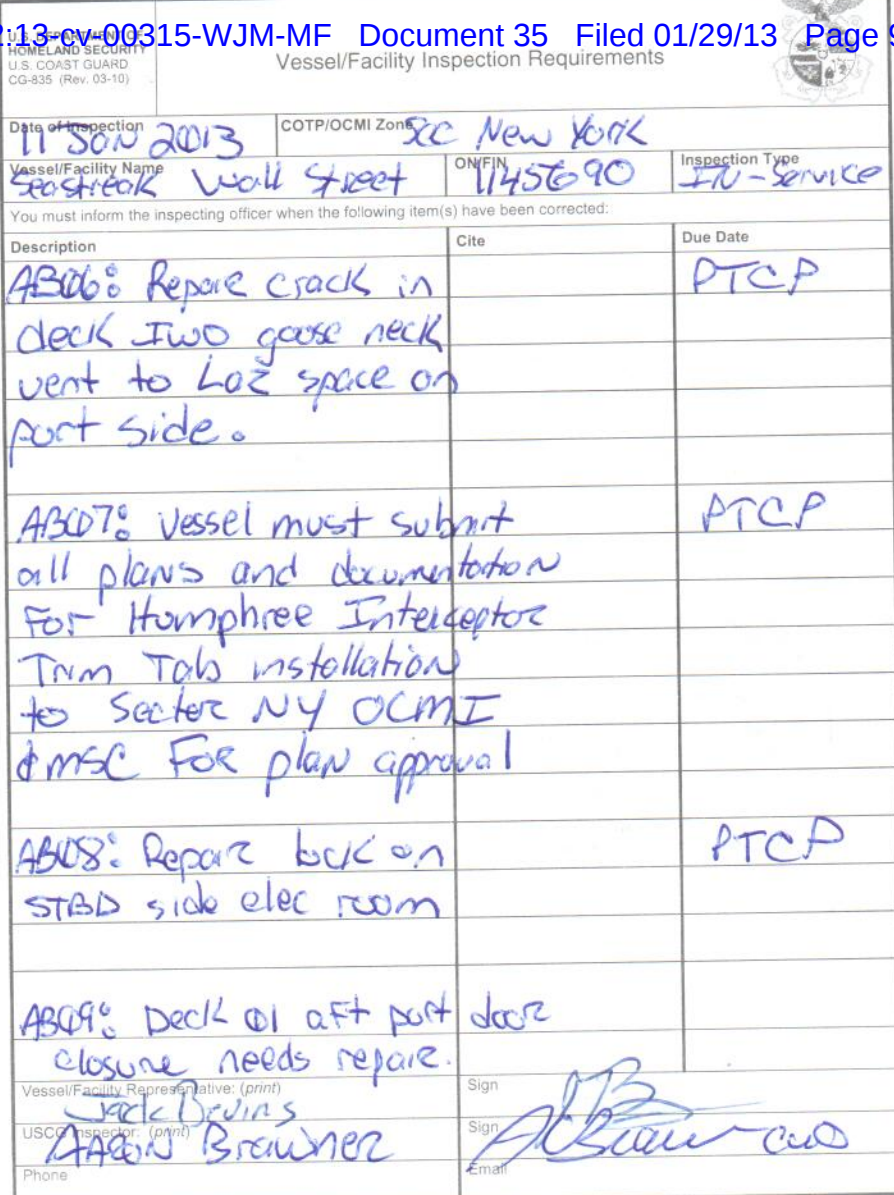 2:13-cv-00315-WJM-MF Document 35 Filed 01/29/13 Page 9
U.S. DEPARTMENT OF
HOMELAND SECURITY
U.S. COAST GUARD
CG-835 (Rev. 03-10)
Vessel/Facility Inspection Requirements
Date of Inspection
11 JAN 2013
COTP/OCMI Zone
SEC New York
Vessel/Facility Name
Seastreak Wall Street
ON/FIN
1145690
Inspection Type
IN-Service
You must inform the inspecting officer when the following item(s) have been corrected:
Description Cite Due Date
AB06: Repair crack in PTCP
deck IWO goose neck
vent to Laz space on
port side.
AB07: Vessel must submit PTCP
all plans and documentation
For Humphree Interceptor
Trim Tab installation
to Sector NY OCMI
& MSC FOR plan approval
AB08: Repair lock on PTCP
STBD side elec room
AB09: Deck 01 aft port door
closure needs repair.
Vessel/Facility Representative: (print) Sign
Jack Bevins
USCG Inspector: (print) Sign
AARON Brawner
CWO
Phone Email